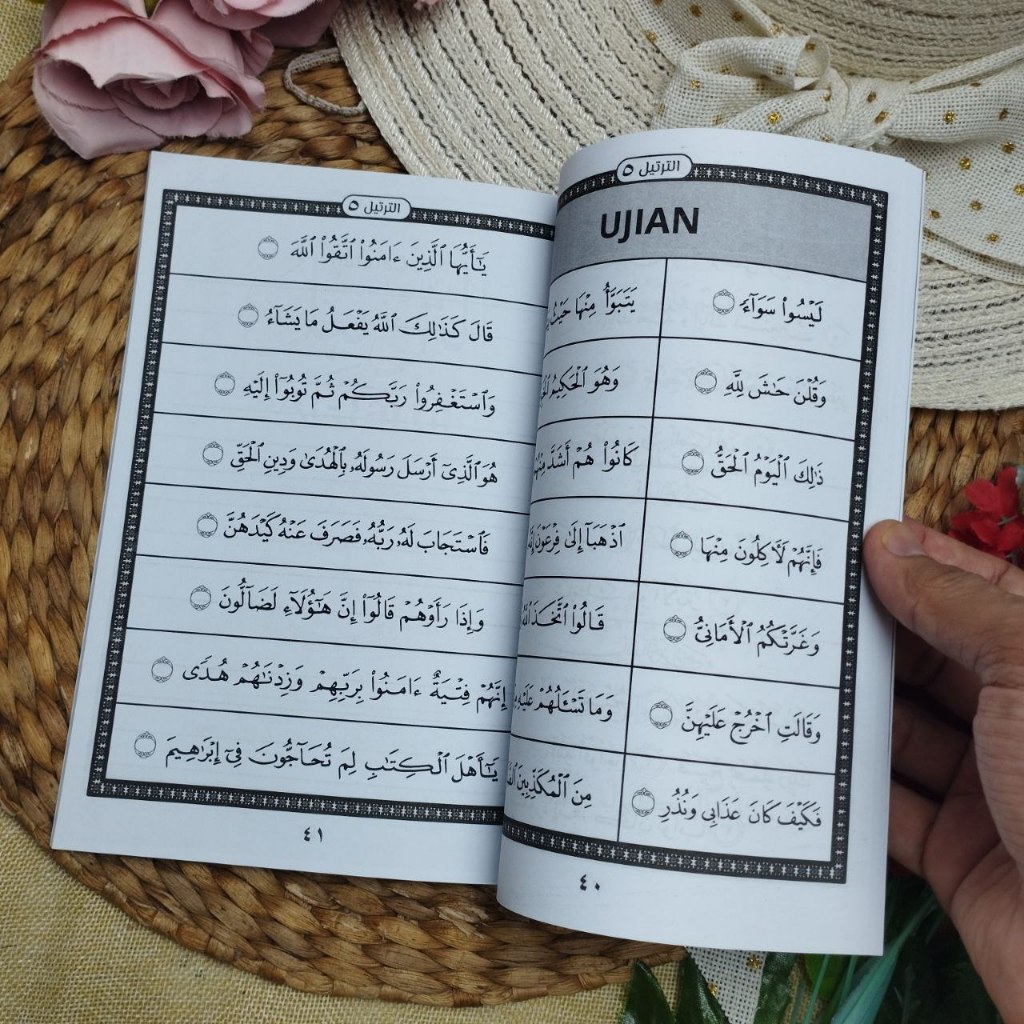 الترتيل ٥
UJIAN
لَيْسُوا۟ سَوَآءً
يَتَبَوَّأُ مِنْهَا حَيْثُ
وَقُلْنَ حَٰشَ لِلَّهِ
وَهُوَ ٱلْحَكِيمُ
ذَٰلِكَ ٱلْيَوْمُ ٱلْحَقُّ
كَانُوا۟ هُمْ أَشَدَّ مِنْهُمْ
فَإِنَّهُمْ لَـَٔاكِلُونَ مِنْهَا
ٱذْهَبَآ إِلَىٰ فِرْعَوْنَ
وَغَرَّتْكُمُ ٱلْأَمَانِىُّ
قَالُوا۟ ٱتَّخَذَ
وَقَالَتِ ٱخْرُجْ عَلَيْهِنَّ
وَمَا تَسْـَٔلُهُمْ عَلَيْهِ
فَكَيْفَ كَانَ عَذَابِى وَنُذُرِ
مِنَ ٱلْمُكَذِّبِينَ
٤٠
الترتيل ٥
يَٰٓأَيُّهَا ٱلَّذِينَ ءَامَنُوا۟ ٱتَّقُوا۟ ٱللَّهَ
قَالَ كَذَٰلِكَ ٱللَّهُ يَفْعَلُ مَا يَشَآءُ
وَٱسْتَغْفِرُوا۟ رَبَّكُمْ ثُمَّ تُوبُوٓا۟ إِلَيْهِ
هُوَ ٱلَّذِىٓ أَرْسَلَ رَسُولَهُۥ بِٱلْهُدَىٰ وَدِينِ ٱلْحَقِّ
فَٱسْتَجَابَ لَهُۥ رَبُّهُۥ فَصَرَفَ عَنْهُ كَيْدَهُنَّ
وَإِذَا رَأَوْهُمْ قَالُوٓا۟ إِنَّ هَٰٓؤُلَآءِ لَضَآلُّونَ
إِنَّهُمْ فِتْيَةٌ ءَامَنُوا۟ بِرَبِّهِمْ وَزِدْنَٰهُمْ هُدًى
يَٰٓأَهْلَ ٱلْكِتَٰبِ لِمَ تُحَآجُّونَ فِىٓ إِبْرَٰهِيمَ
٤١